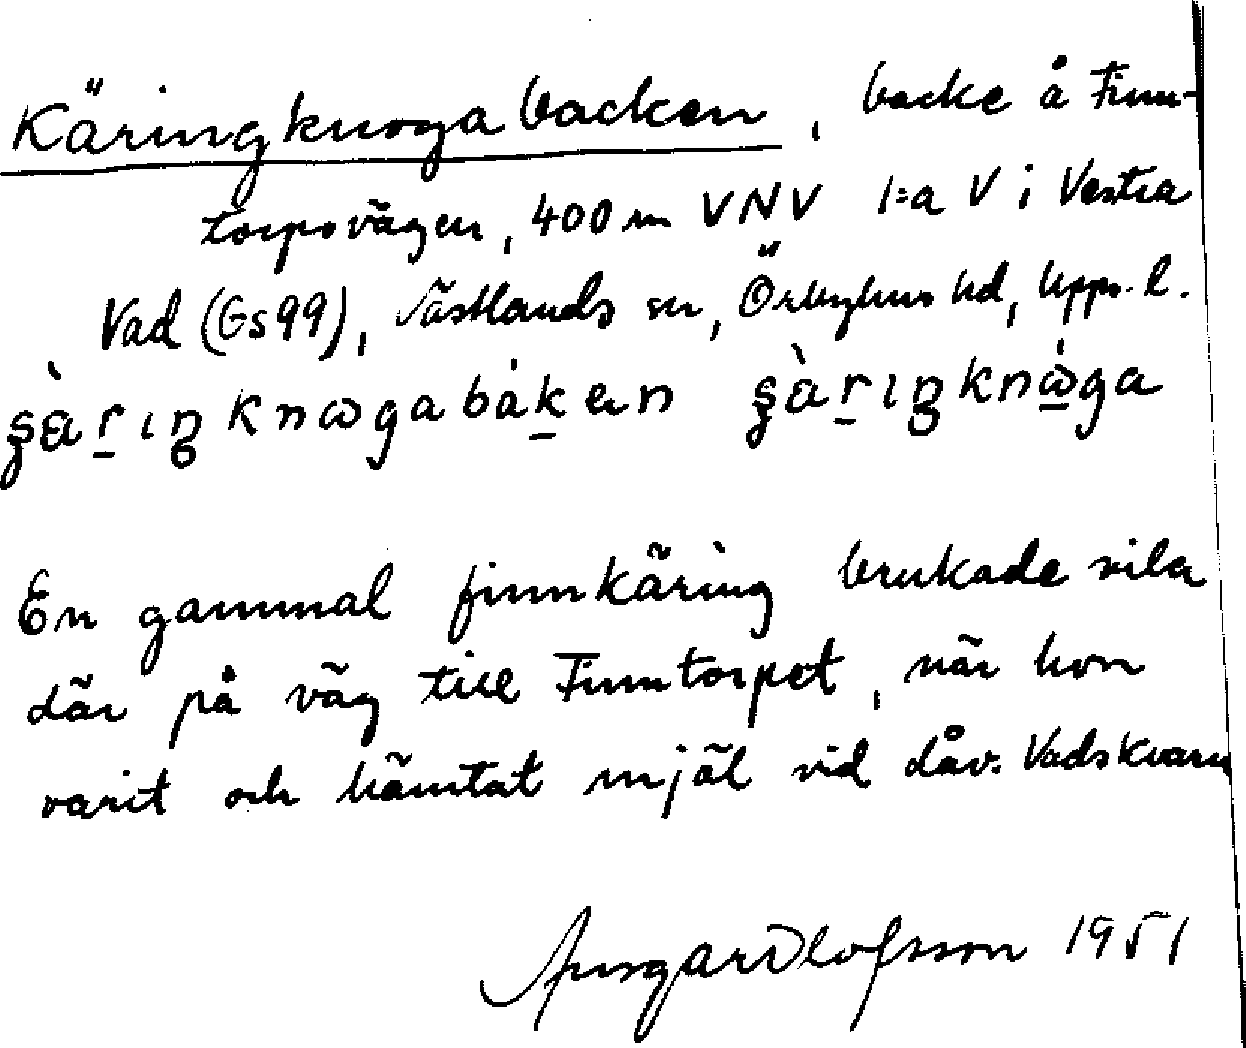 Käringknogabacken, backe å Finn-
torpsvägen, 400 m VNV 1:a V i Vestra
Vad (Gs99), Västlands sn, Örbyhus hd, Upps. l.
ʂὰrıŋknωgabάkən ʂὰrıŋknώga
En gammal finnkäring brukade vila
där på väg till Finntorpet, när hon
varit och hämtat mjöl vid dåv. Vadskvarn
Ansgar Olofsson 1951